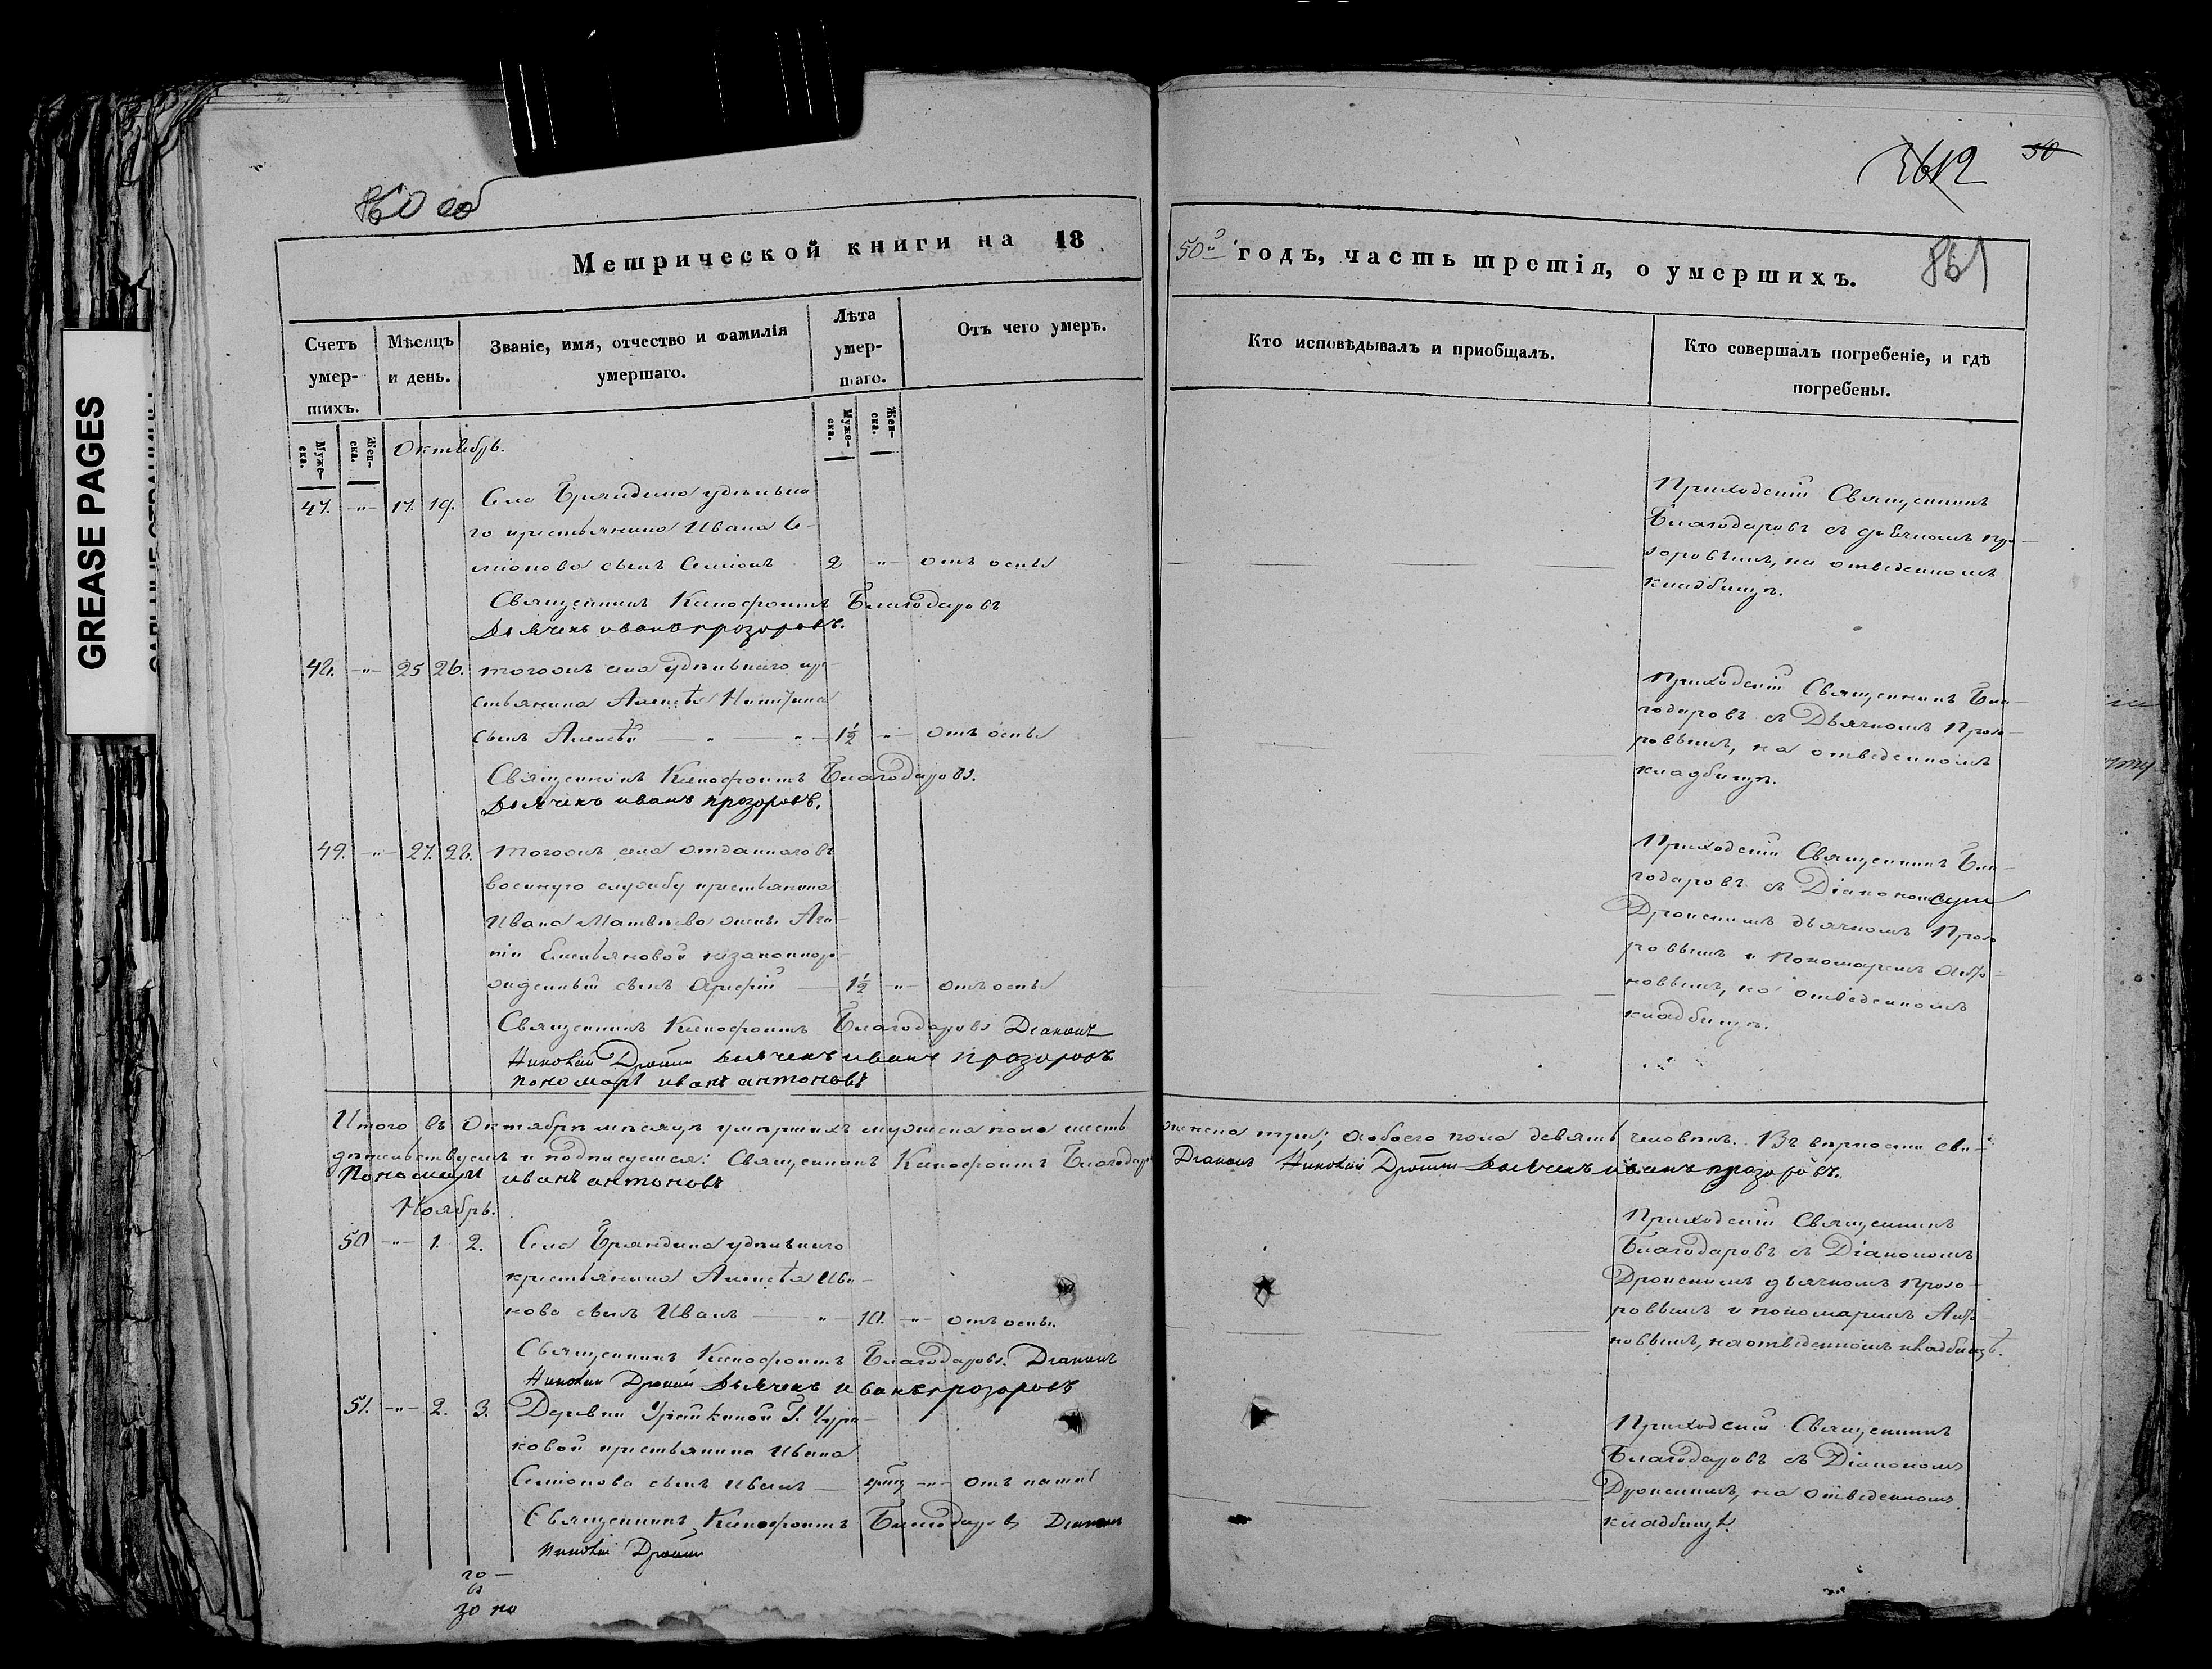 860 об
3612
50
Метрической книги на 18
50й годъ, часть третія, о умершихъ.
861
Счетъ умер-
шихъ.
Мѣсяцъ
и день.
Званіе, имя, отчество и фамилія
умершаго.
Лѣта
умер-
шаго.
Отъ чего умеръ.
Кто исповѣдывалъ и приобщалъ.
Кто совершалъ погребеніе, и гдѣ
погребены.
Муже-
ска.
Жен-
ска.
Муже-
ска.
Жен-
ска.
Октябрь.
47. -"- 17. 19. Села Бряндина удѣльна
го крестьянина Ивана Се-
міонова сынъ Семіонъ 2 -"- отъ оспы
Священникъ Ксенофонтъ Благодаровъ
Дьячекъ иванъ прозоровъ.
Приходскій Священникъ
Благодаровъ съ дьячкомъ Про-
зоровымъ, на отведенномъ
кладбищѣ.
48. -"- 25 26. тогожъ села удѣльнаго кре-
стьянина Алексѣя Никитина
сынъ Алексѣй -"- 1½ -"- отъ оспы
Священникъ Ксенофонтъ Благодаровъ.
Дьячекъ иванъ прозоровъ.
Приходскій Священникъ Бла-
годаровъ съ Дьячкомъ Прозо-
ровымъ, на отведенномъ
кладбищѣ.
49. -"- 27. 28. тогожъ села отданнаго въ
военную службу крестьянина
Ивана Матвѣева жены Ага-
піи Емельяновой незаконнор-
ожденный сынъ 1½ -"- отъ оспы
Священникъ Ксенофонтъ Благодаровъ Діаконъ
Николай дьячекъ иванъ прозоровъ
пономарь иванъ антоновъ
Приходскій Священникъ Бла-
годаровъ съ Діакономъ
дьячкомъ Прозо-
ровымъ и Пономаремъ Анто-
новымъ, на отведенномъ
кладбищѣ.
Итого въ Октябрѣ мѣсяцѣ умершихъ мужеска пола шесть женска три; обоего пола девять человѣкъ. Въ вѣрности сви-
дѣтельствуемъ и подписуемся: Священникъ Ксенофонтъ Благодаровъ Діаконъ Николай Дьячекъ иванъ прозоровъ.
Пономарь иванъ антоновъ
Ноябрь.
50 -"- 1. 2. Села Бряндина удѣльнаго
крестьянина Алексѣя Ива-
нова сынъ Иванъ -"- 10. -"- отъ оспы.
Священникъ Ксенофонтъ Благодаровъ. Діаконъ
Николай Дьячекъ иванъ прозоровъ
Приходскій Священникъ
Благодаровъ съ Діакономъ
дьячкомъ Прозо-
ровымъ и пономаремъ Анто-
новымъ, на отведенномъ кладбищѣ.
51. -"- 2. 3. Деревни Урайкиной Г.
ковой крестьянина Ивана
Семіонова сынъ Иванъ -"- отъ
Священникъ Ксенофонтъ Благодаровъ Діаконъ
Николай
Приходскій Священникъ
Благодаровъ съ Діакономъ
на отведенномъ
кладбищѣ.
GREASE PAGES